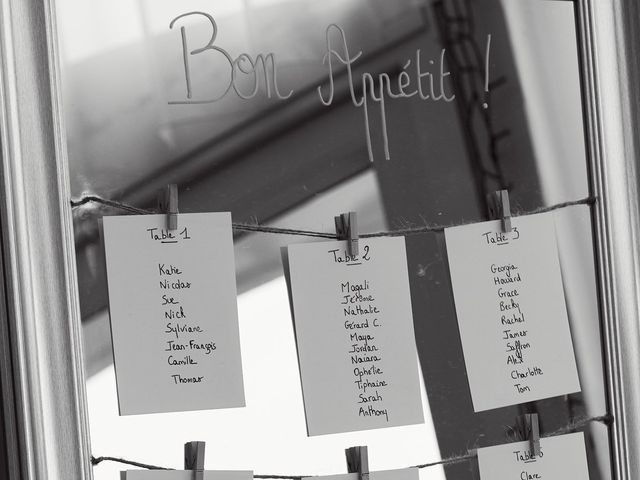 Bon Appétit !
Table 1
Katie
Nicolas
Sue
Nick
Sylviane
Jean-François
Camille
Thomas
Table 2
Magali
Jérôme
Nathalie
Gérard C.
Maya
Jordan
Naiara
Ophélie
Tiphaine
Sarah
Anthony
Table 3
Georgia
Howard
Grace
Becky
Rachel
James
Saffron
Alex
Charlotte
Tom
Table 6
Clare